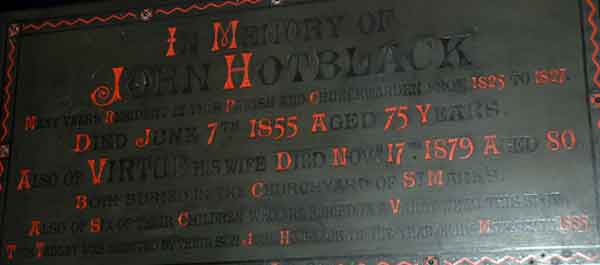 IN MEMORY OF
JOHN HOTBLACK
MANY YEARS RESIDENT IN THIS PARISH AND CHURCHWARDEN FROM 1825 TO 1827.
DIED JUNE 7TH 1855 AGED 75 YEARS.
ALSO OF VIRTUE HIS WIFE DIED NOV. 17TH 1879 AGED 80
BOTH BURIED IN THE CHURCHYARD OF ST MARKS.
ALSO OF SIX OF THEIR CHILDREN WHO ARE BURIED IN A VAULT NEAR THIS
THIS TABLET WAS ERECTED BY THEIR SON J. H.